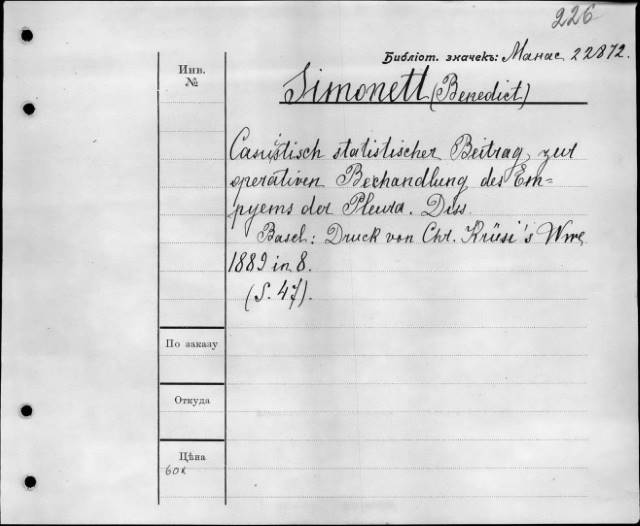 226
Библіот. значекъ: Манас 22872.
Инв.
№
Simonett (Benedict)
Casuistisch statistischer Beitrag zur
operativen Bechandlung des Em=
pyems der Pleura. Diss.
Basel: Druck von Chr. Krüsi's Wwe
1889 in 8.
(S. 47).
По заказу
Откуда
Цѣна
60к